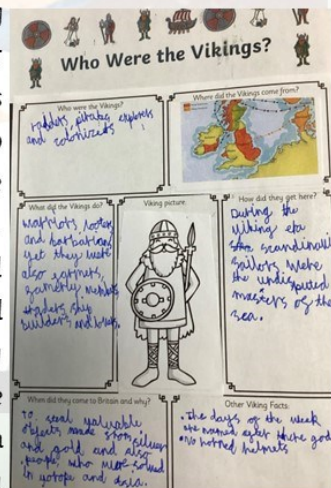 Who Were the Vikings?
Who were the Vikings?
raiders, pirates, explorers
and colonizers
Where did the Vikings come from?
What did the Vikings do?
warriors, looters
and barbarians
yet they were
also farmers,
family members
traders ship
builders and
Viking picture
How did they get here?
During the
viking era
scandinavi
sailors were
the undisputed
masters of the
sea.
When did they come to Britain and why?
To steal valuable
objects made from silver
and gold and also
people, who were
in and asia.
Other Viking Facts.
• The days of the week
are named after there god
• No horned helmets